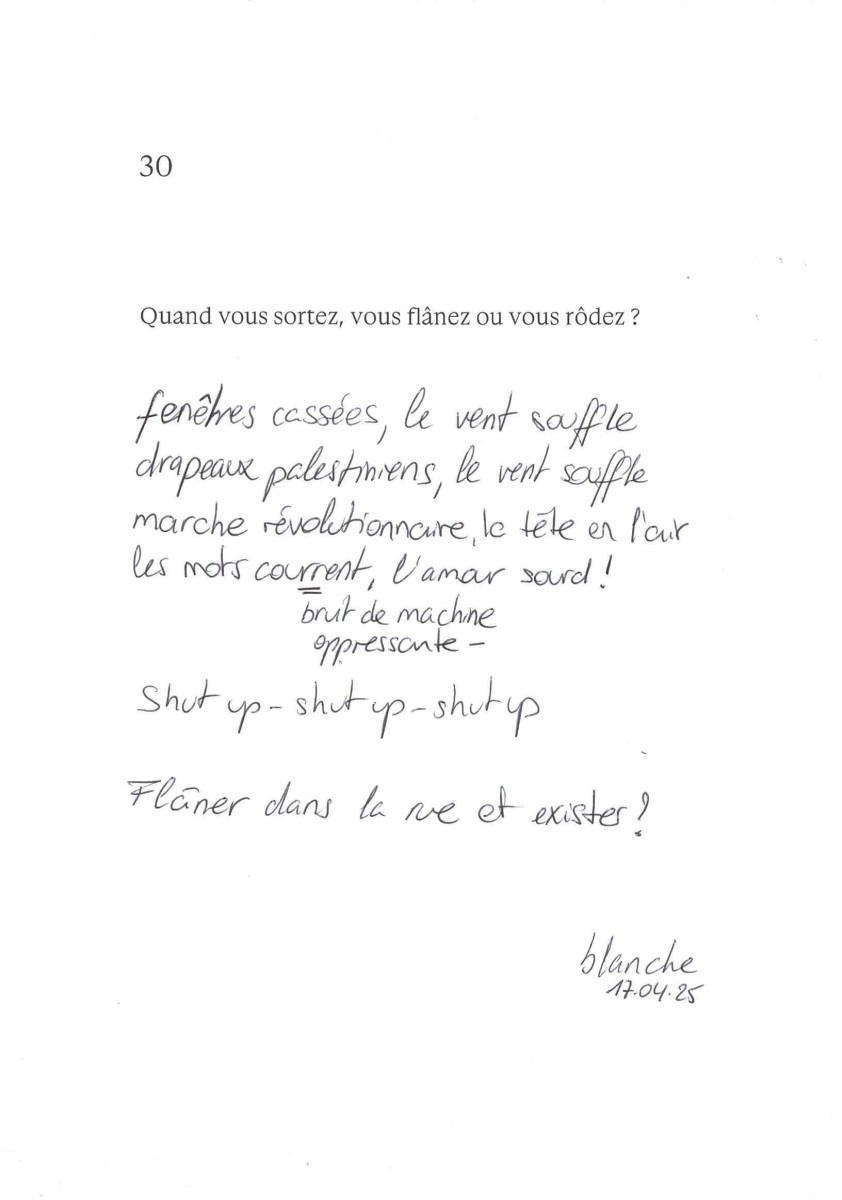 30
Quand vous sortez, vous flânez ou vous rôdez ?
fenêtres cassées, le vent souffle
drapeaux palestiniens, le vent souffle
marche révolutionnaire, la tête en l'air
les mots courrent, l'amar sourd !
bruit de machine
oppressante -
Shut up - shut up - shut up
Flâner dans la rue et exister ?
blanche
17.04.25